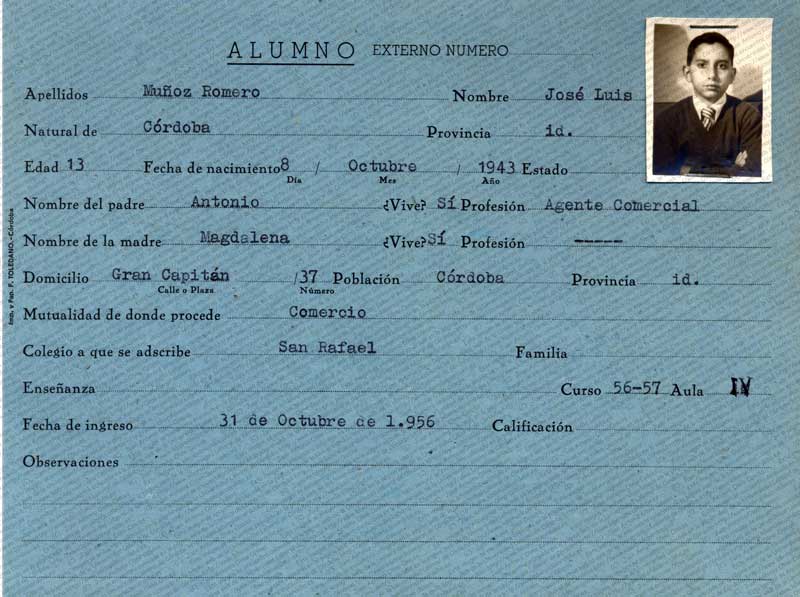 ALUMNO EXTERNO NUMERO
Apellidos Muñoz Romero Nombre José Luis
Natural de Córdoba Provincia id.
Edad 13 Fecha de nacimiento 8 / Octubre / 1943 Estado
Día Mes Año
Nombre del padre Antonio ¿Vive? Sí Profesión Agente Comercial
Nombre de la madre Magdalena ¿Vive? Sí Profesión -----
Domicilio Gran Capitán /37 Población Córdoba Provincia id.
Calle o Plaza Número
Mutualidad de donde procede Comercio
Colegio a que se adscribe San Rafael Familia
Enseñanza Curso 56-57 Aula IV
Fecha de ingreso 31 de Octubre de 1.956 Calificación
Observaciones
Imp. y Pap. F. TOLEDANO.-Córdoba